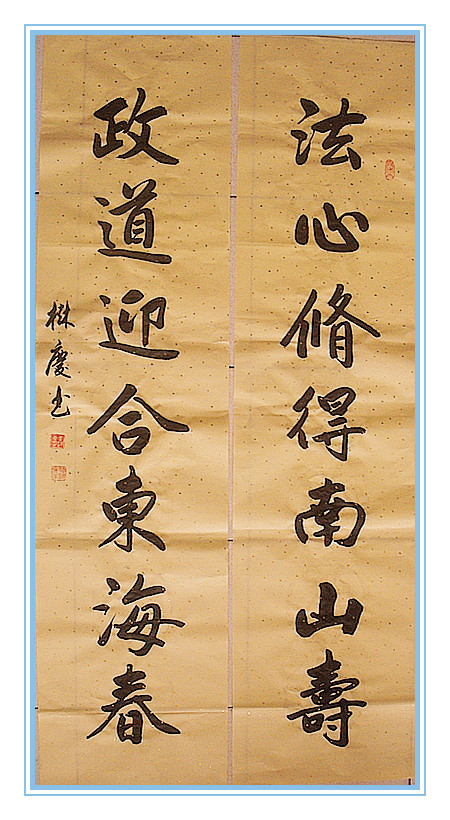 法心脩得南山壽
政道迎合東海春
楙慶书